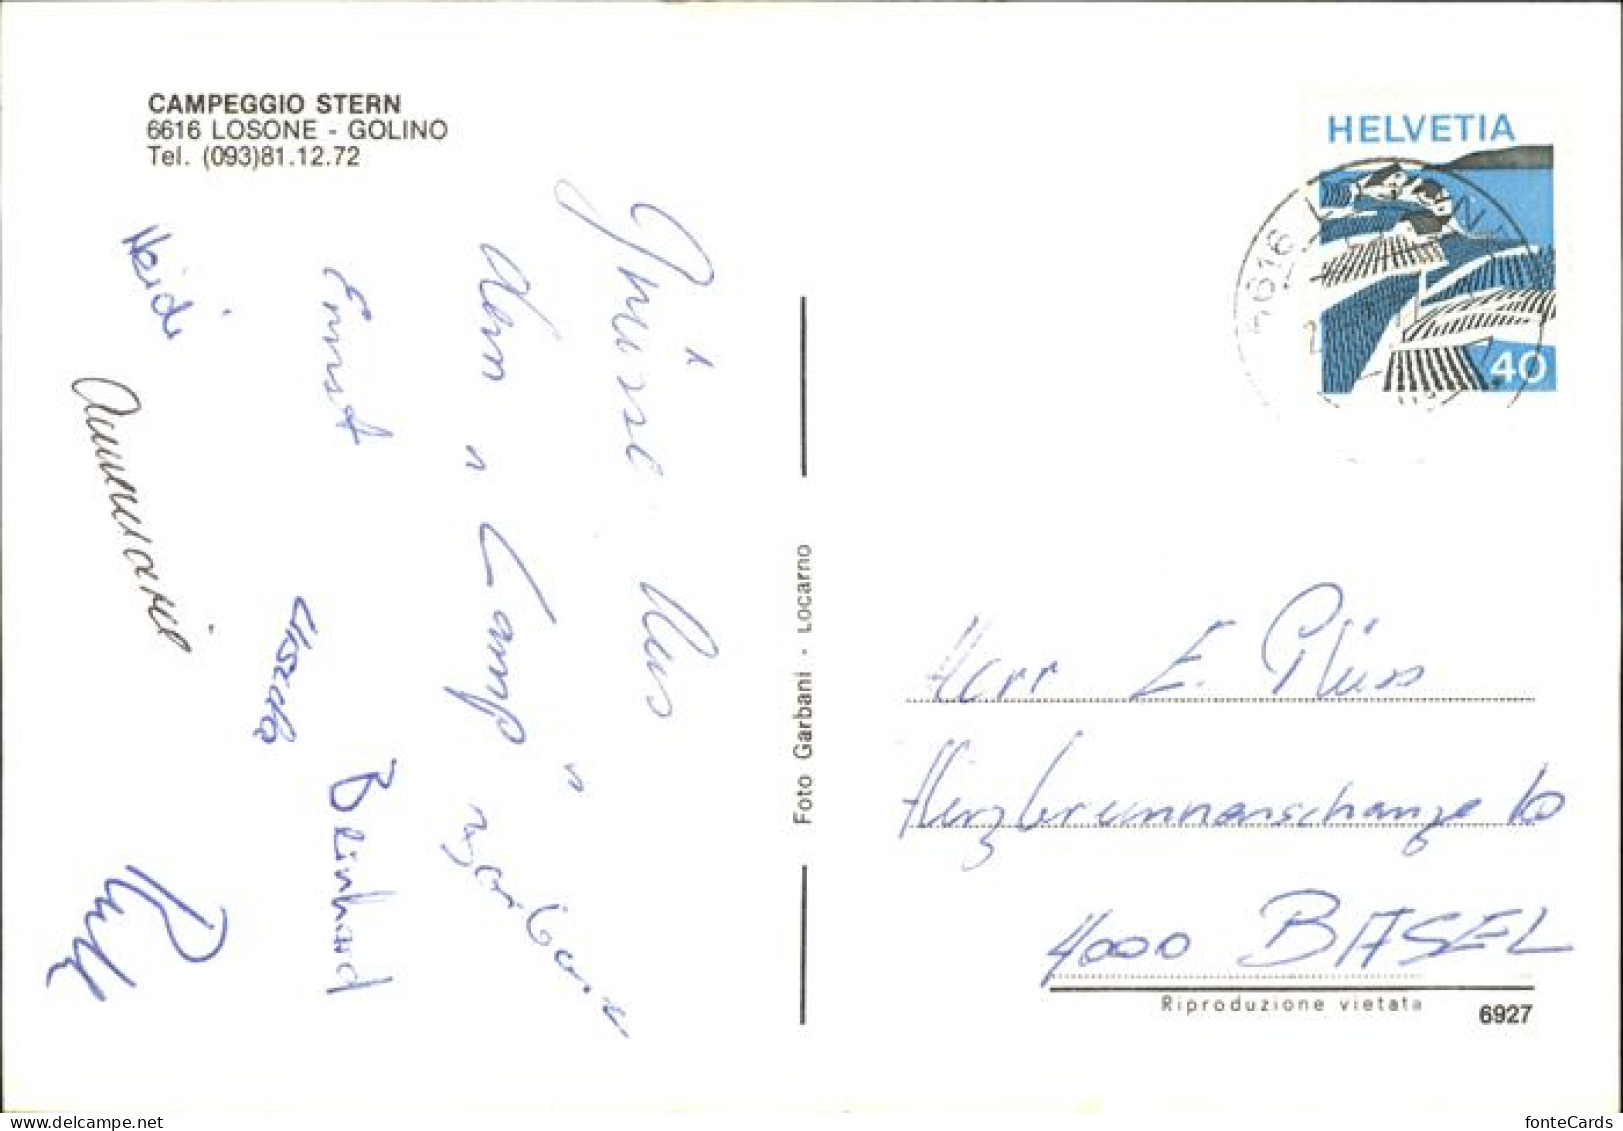 CAMPEGGIO STERN
6616 LOSONE - GOLINO
Tel. (093)81.12.72
Grüsse Aus
dem "Camp"
Ernst
Heidi
Annemarie
Ursula
Beinhard
Foto Garbani - Locarno
HELVETIA
40
6616 LOSONE
Herr E. Plüss
Herzbrunnenschanze 10
4000 BASEL
Riproduzione vietata
6927
fonteCards